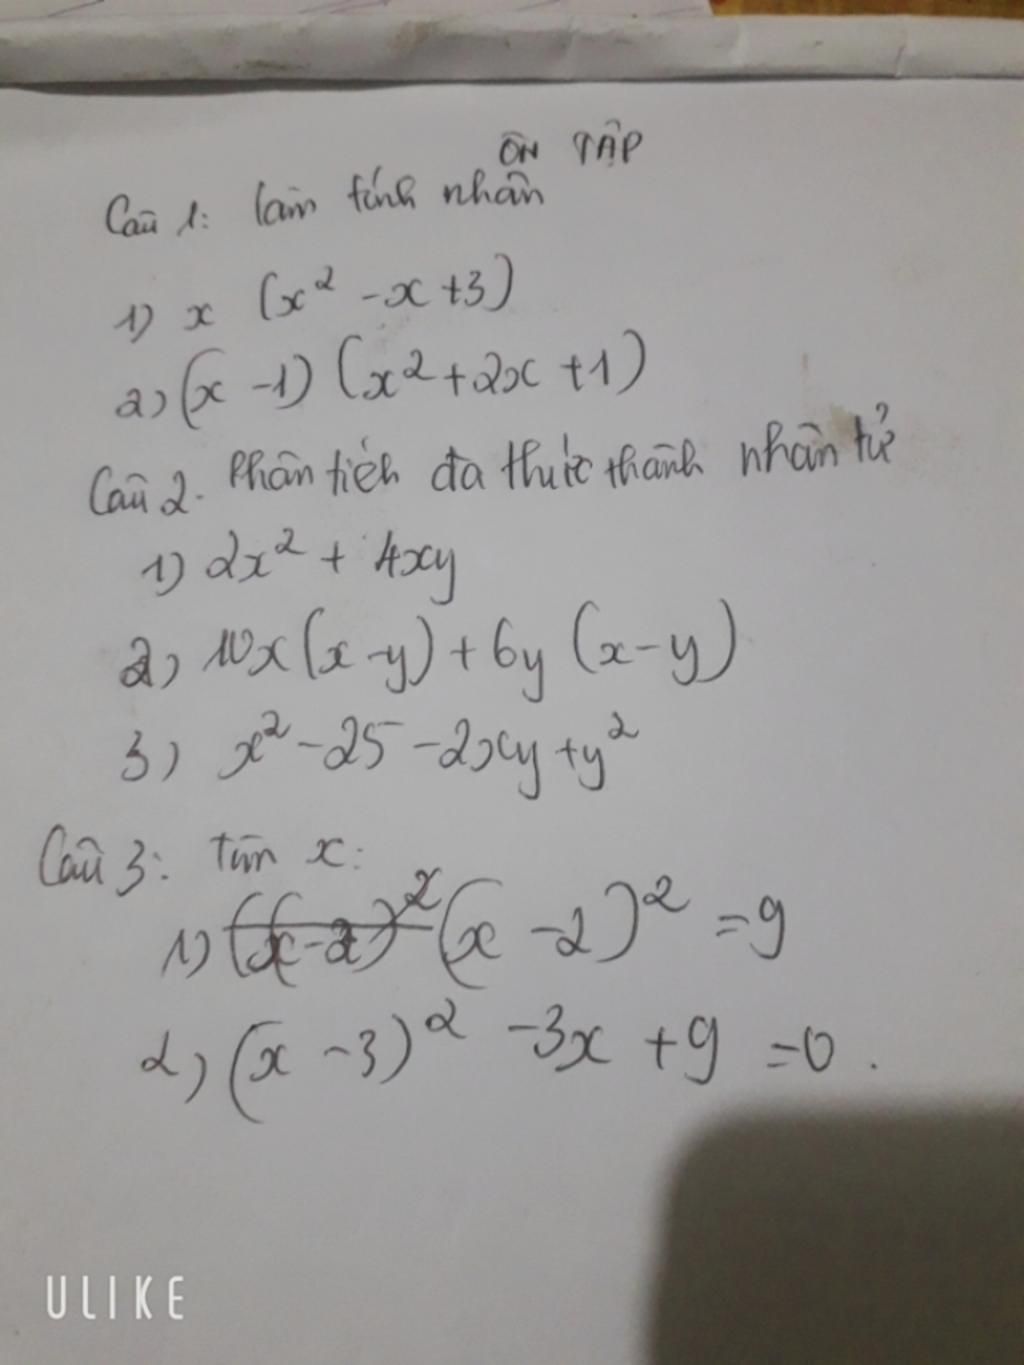 ÔN TẬP
Câu 1: làm tính nhân
1) x (x² - x + 3)
2) (x - 1) (x² + 2x + 1)
Câu 2. Phân tích đa thức thành nhân tử
1) 2x² + 4xy
2) 10x(x - y) + 6y (x - y)
3) x² - 25 - 2xy + y²
Câu 3: Tìm x:
1) (x - 2)² = 9
2) (x - 3)² - 3x + 9 = 0.
ULIKE